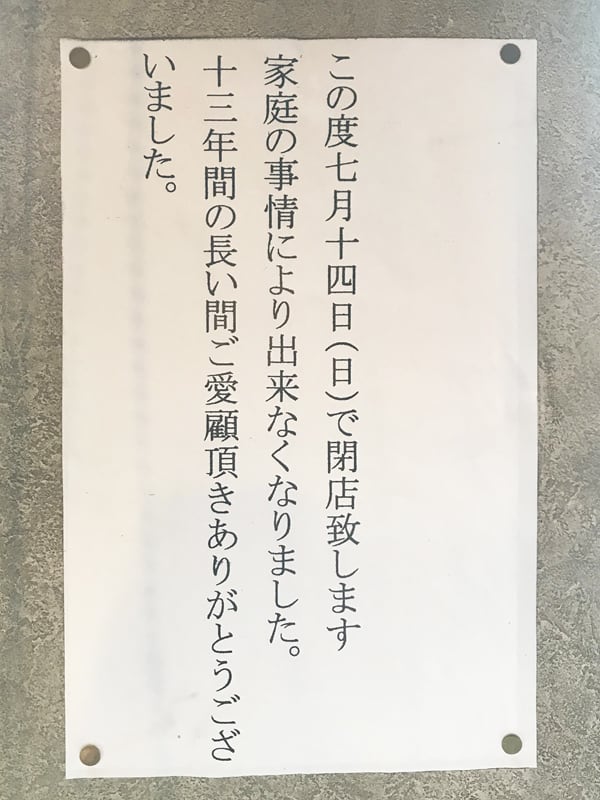 この度七月十四日(日)で閉店致します
家庭の事情により出来なくなりました。
十三年間の長い間ご愛顧頂きありがとうござ
いました。